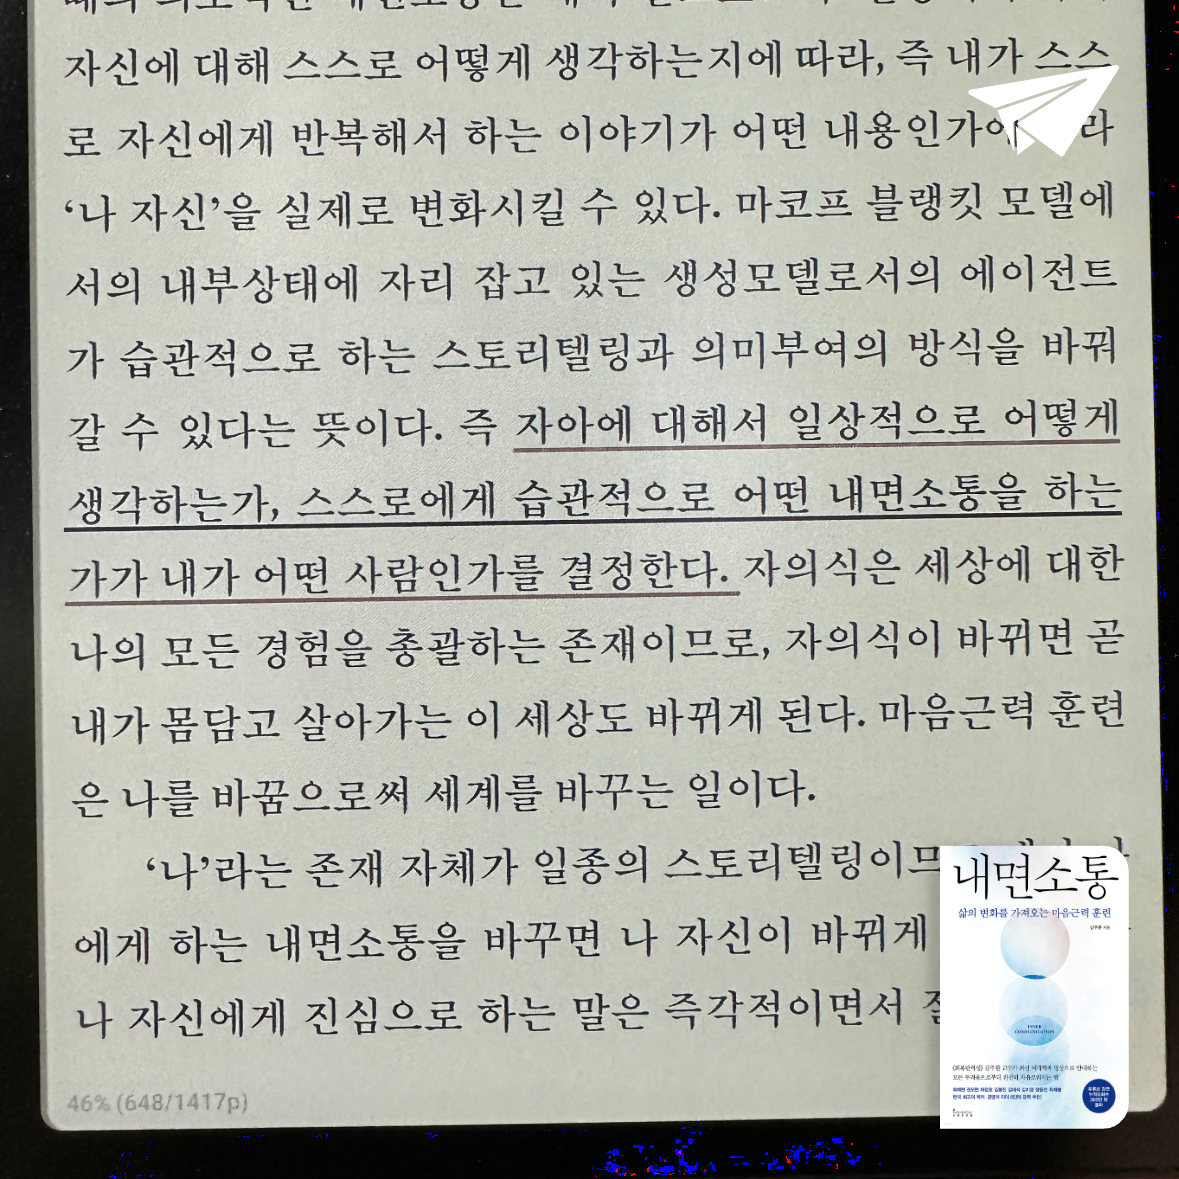 자신에 대해 스스로 어떻게 생각하는지에 따라, 즉 내가 스스
로 자신에게 반복해서 하는 이야기가 어떤 내용인가에 따라
‘나 자신’을 실제로 변화시킬 수 있다. 마코프 블랭킷 모델에
서의 내부상태에 자리 잡고 있는 생성모델로서의 에이전트
가 습관적으로 하는 스토리텔링과 의미부여의 방식을 바꿔
갈 수 있다는 뜻이다. 즉 자아에 대해서 일상적으로 어떻게
생각하는가, 스스로에게 습관적으로 어떤 내면소통을 하는
가가 내가 어떤 사람인가를 결정한다. 자의식은 세상에 대한
나의 모든 경험을 총괄하는 존재이므로, 자의식이 바뀌면 곧
내가 몸담고 살아가는 이 세상도 바뀌게 된다. 마음근력 훈련
은 나를 바꿈으로써 세계를 바꾸는 일이다.
‘나’라는 존재 자체가 일종의 스토리텔링이므
에게 하는 내면소통을 바꾸면 나 자신이 바뀌게
나 자신에게 진심으로 하는 말은 즉각적이면서
46% (648/1417p)
내면소통
삶의 변화를 가져오는 마음근력 훈련
김주환 지음
INNER
COMMUNICATION